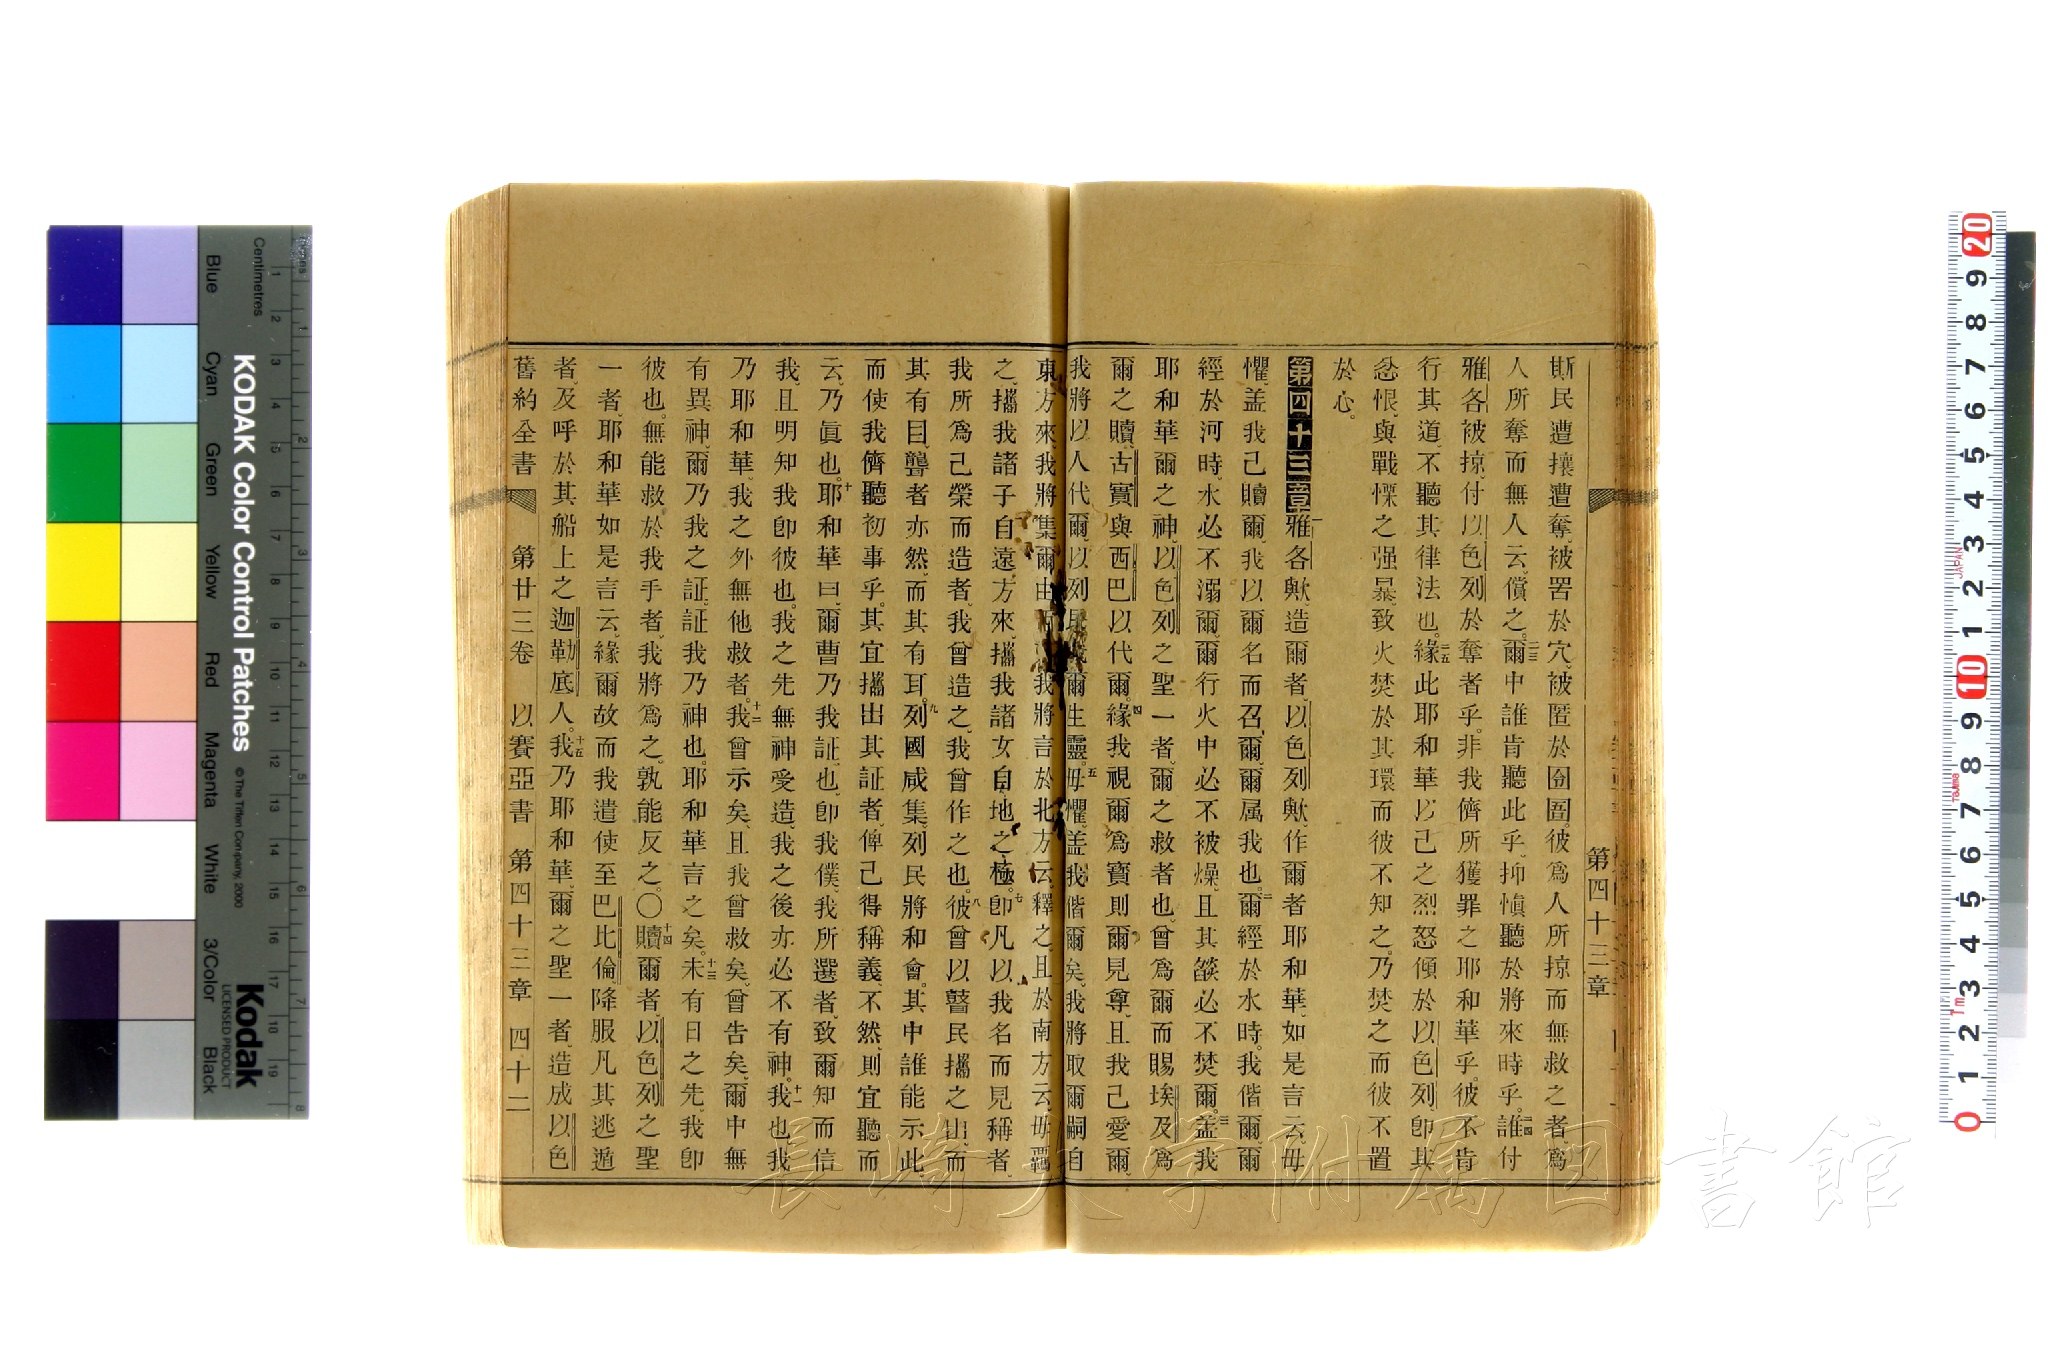 第四十三章
斯民遭攘遭奪、被罟於穴、被匿於囹圄。彼爲人所掠而無救之者、爲
人所奪而無人云、償之。二三爾中誰肯聽此乎、抑愼聽於將來時乎。二四誰付
雅各被掠、付以色列於奪者乎。非我儕所獲罪之耶和華乎。彼不肯
行其道、不聽其律法也。二五緣此耶和華以己之烈怒傾於以色列、卽其
忿恨、與戰慄之强暴、致火焚於其環而彼不知之、乃焚之而彼不置
於心。
第四十三章 一雅各歟、造爾者、以色列歟、作爾者耶和華、如是言云、毋
懼、盖我己贖爾、我以爾名而召爾、爾属我也。二爾經於水時、我偕爾、爾
經於河時、水必不溺爾、爾行火中必不被燥、且其燄必不焚爾。三盖我
耶和華爾之神、以色列之聖一者、爾之救者也、曾爲爾而賜埃及爲
爾之贖、古實與西巴以代爾。四緣我視爾爲寶則爾見尊、且我己愛爾、
我將以人代爾、以列民 爾生靈。五毋懼、盖我偕爾矣、我將取爾嗣自
東方來、我將集爾由 我將言於北方云、釋之、且於南方云、毋羈
之、攜我諸子自遠方來、攜我諸女自地之極。七卽凡以我名而見稱者、
我所爲己榮而造者、我曾造之、我曾作之也。八彼曾以瞽民攜之出、而
其有目、聾者亦然、而其有耳。九列國咸集、列民將和會。其中誰能示此、
而使我儕聽初事乎。其宜攜出其証者、俾己得稱義、不然、則宜聽而
云、乃眞也。十耶和華曰、爾曹乃我証也、卽我僕、我所選者、致爾知而信
我、且明知我卽彼也。我之先無神受造、我之後亦必不有神。十一我也、我
乃耶和華、我之外無他救者。十二我曾示矣、且我曾救矣、曾告矣、爾中無
有異神、爾乃我之証、証我乃神也。耶和華言之矣。十三未有日之先、我卽
彼也。無能救於我手者、我將爲之、孰能反之。〇十四贖爾者、以色列之聖
一者、耶和華如是言云、緣爾故而我遣使至巴比倫、降服凡其逃遁
者、及呼於其船上之迦勒底人。十五我乃耶和華、爾之聖一者、造成以色
舊約全書 第廿三卷 以賽亞書 第四十三章 四十二
長崎大学附属図書館
KODAK Color Control Patches
© The Tiffen Company, 2000
Kodak
LICENSED PRODUCT
Centimetres
Blue Cyan Green Yellow Red Magenta White 3/Color Black
1 2 3 4 5 6 7 8 9 10 11 12 13 14 15 16 17 18 19
1 2 3 4 5 6 7 8
20 9 8 7 6 5 4 3 2 1 10 9 8 7 6 5 4 3 2 1 0
JAPAN